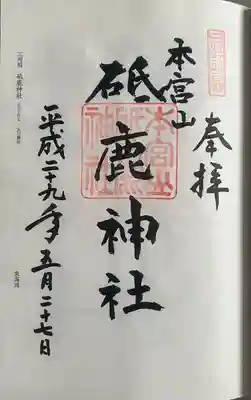 奉拝
本宮山
砥鹿神社
平成二十九年五月二十七日
三河國 砥鹿神社
東海道